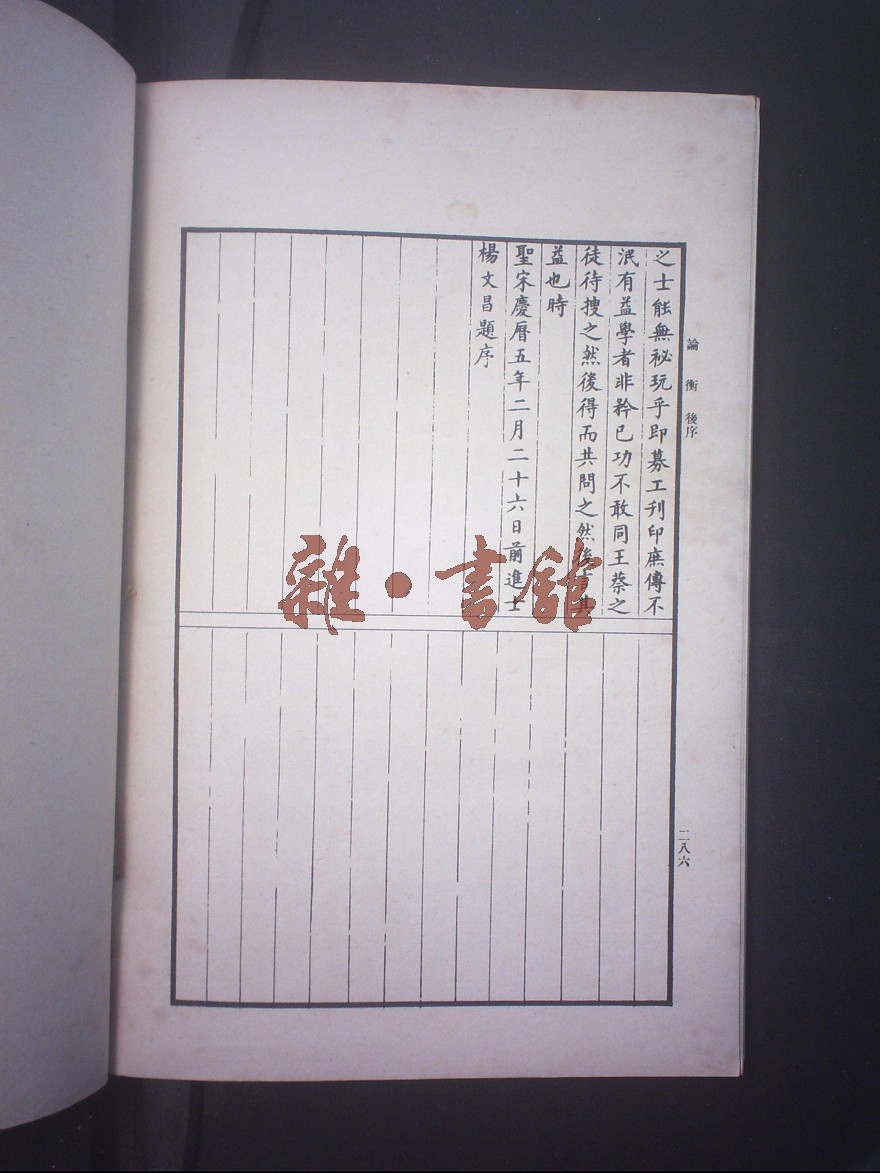 之士能無祕玩乎即募工刊印庶傳不
泯有益學者非矜已功不敢同王蔡之
徒待搜之然後得而共問之然後言其
益也時
聖宋慶曆五年二月二十六日前進士
楊文昌題序
論衡 後序
二八六
雜·書館